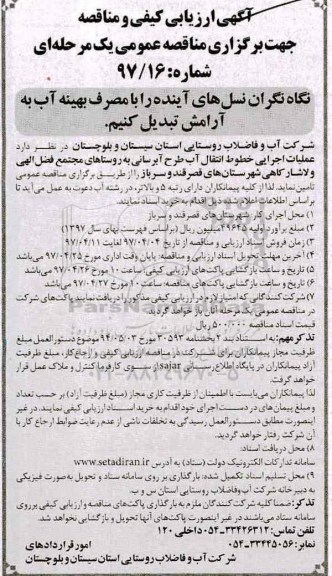 آگهی ارزیابی کیفی و مناقصه
جهت برگزاری مناقصه عمومی یک مرحله‌ای
شماره: ۹۷/۱۶
نگاه نگران نسل‌های آینده را با مصرف بهینه آب به
آرامش تبدیل کنیم.
شرکت آب و فاضلاب روستایی استان سیستان و بلوچستان در نظر دارد
عملیات اجرایی خطوط انتقال آب طرح آبرسانی به روستاهای مجتمع فضل الهی
و لاشار کاهی شهرستان‌های قصرقند و سرباز را از طریق برگزاری مناقصه عمومی
تامین نماید. لذا از کلیه پیمانکاران دارای رتبه ۵ و بالاتر، در رشته آب دعوت به عمل می‌آید تا
بر اساس اطلاعات اعلام شده ذیل اقدام به خرید اسناد نمایند.
۱) محل اجرای کار شهرستان‌های قصرقند و سرباز
۲) مبلغ برآورد اولیه ۲۹۶۴۵ میلیون ریال (براساس فهرست بهای سال ۱۳۹۷)
۳) زمان فروش اسناد ارزیابی و مناقصه از تاریخ ۹۷/۰۴/۰۴ لغایت ۹۷/۰۴/۱۱
۴) آخرین مهلت تحویل اسناد ارزیابی و مناقصه: پایان وقت اداری مورخ ۹۷/۰۴/۲۵ می‌باشد
۵) تاریخ و ساعت بازگشایی پاکت‌های ارزیابی کیفی: ساعت ۱۰ مورخ ۹۷/۰۴/۲۶ می‌باشد
۶) تاریخ و ساعت بازگشایی پاکت‌های مناقصه: ساعت ۱۰ مورخ ۹۷/۰۴/۲۷ می‌باشد
۷) شرکت کنندگانی که امتیاز لازم در ارزیابی کیفی مذکور را دریافت نمایند پاکت‌های شرکت
در مناقصه عمومی یک مرحله‌ای آنان باز خواهد گردید.
قیمت اسناد مناقصه ۵۰۰/۰۰۰ ریال
تذکر مهم: به استناد بند ۲ بخشنامه ۳۰۵۹۳ مورخ ۹۴/۰۵/۰۳ موضوع دستورالعمل مبلغ
ظرفیت مجاز پیمانکاران برای شرکت در مناقصه ارزیابی کیفی و ارجاع کار، مبلغ ظرفیت
آزاد پیمانکاران در پایگاه اطلاع رسانی sajar از سوی کارفرما کنترل و ملاک عمل قرار
خواهد گرفت.
لذا پیمانکاران می‌بایست با اطمینان از ظرفیت کاری مجاز (مبلغ ظرفیت آزاد) بر حسب تعداد
و مبلغ پیمان های در دست اجرای خود اقدام به خرید اسناد ارزیابی کیفی نمایند. در غیر
اینصورت مطابق دستورالعمل رسیدگی به تخلفات ناشی از عدم رعایت ضوابط ارجاع کار با
آن شرکت رفتار خواهد گردید.
۸) محل دریافت اسناد:
سامانه تدارکات الکترونیک دولت (ستاد) به آدرس www.setadiran.ir
۹) محل تسلیم اسناد تکمیل شده: بارگذاری بر روی سامانه ستاد و تحویل به صورت فیزیکی
به دبیرخانه شرکت آب و فاضلاب روستایی استان س و ب
تذکر: ضمنا کلیه شرکت کنندگان ملزم به بارگذاری پاکت‌های مناقصه و ارزیابی کیفی بر روی
سامانه ستاد می‌باشند در غیر اینصورت پاکت‌های آنها تحویل و بازگشایی نخواهد شد.
تلفن: ۳۳۴۲۶۳۱۲-۰۵۴ داخلی ۱۲۰
نمابر: ۳۳۴۴۵۰۵۶-۰۵۴ امور قراردادهای
شرکت آب و فاضلاب روستایی استان سیستان و بلوچستان